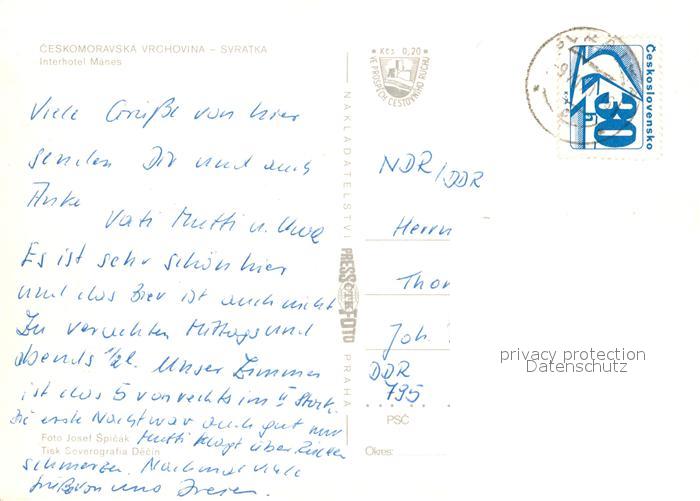 ČESKOMORAVSKÁ VRCHOVINA – SVRATKA
Interhotel Mánes
Viele Grüße von hier
senden Dir und auch
Anke
Vati Mutti u. Uwe
Es ist sehr schön hier
und das Bier ist auch nicht
zu verachten Mittags und
abends 1/2 l. Unser Zimmer
ist das 5 von rechts im II Stock.
Die erste Nacht war auch gut nur
Mutti klagt über Rücken
schmerzen. Nochmal viele
Grüße von uns Dreien.
Foto Josef Špičák
Tisk Severografia Děčín
NAKLADATELSTVÍ
PRESSFOTO
PRAHA
* Kčs 0,20 *
VE PROSPĚCH CESTOVNÍHO RUCHU
Československo
30 h
NDR/DDR
Herrn
Thor
Joh.
DDR
795
PSČ
Okres:
privacy protection
Datenschutz